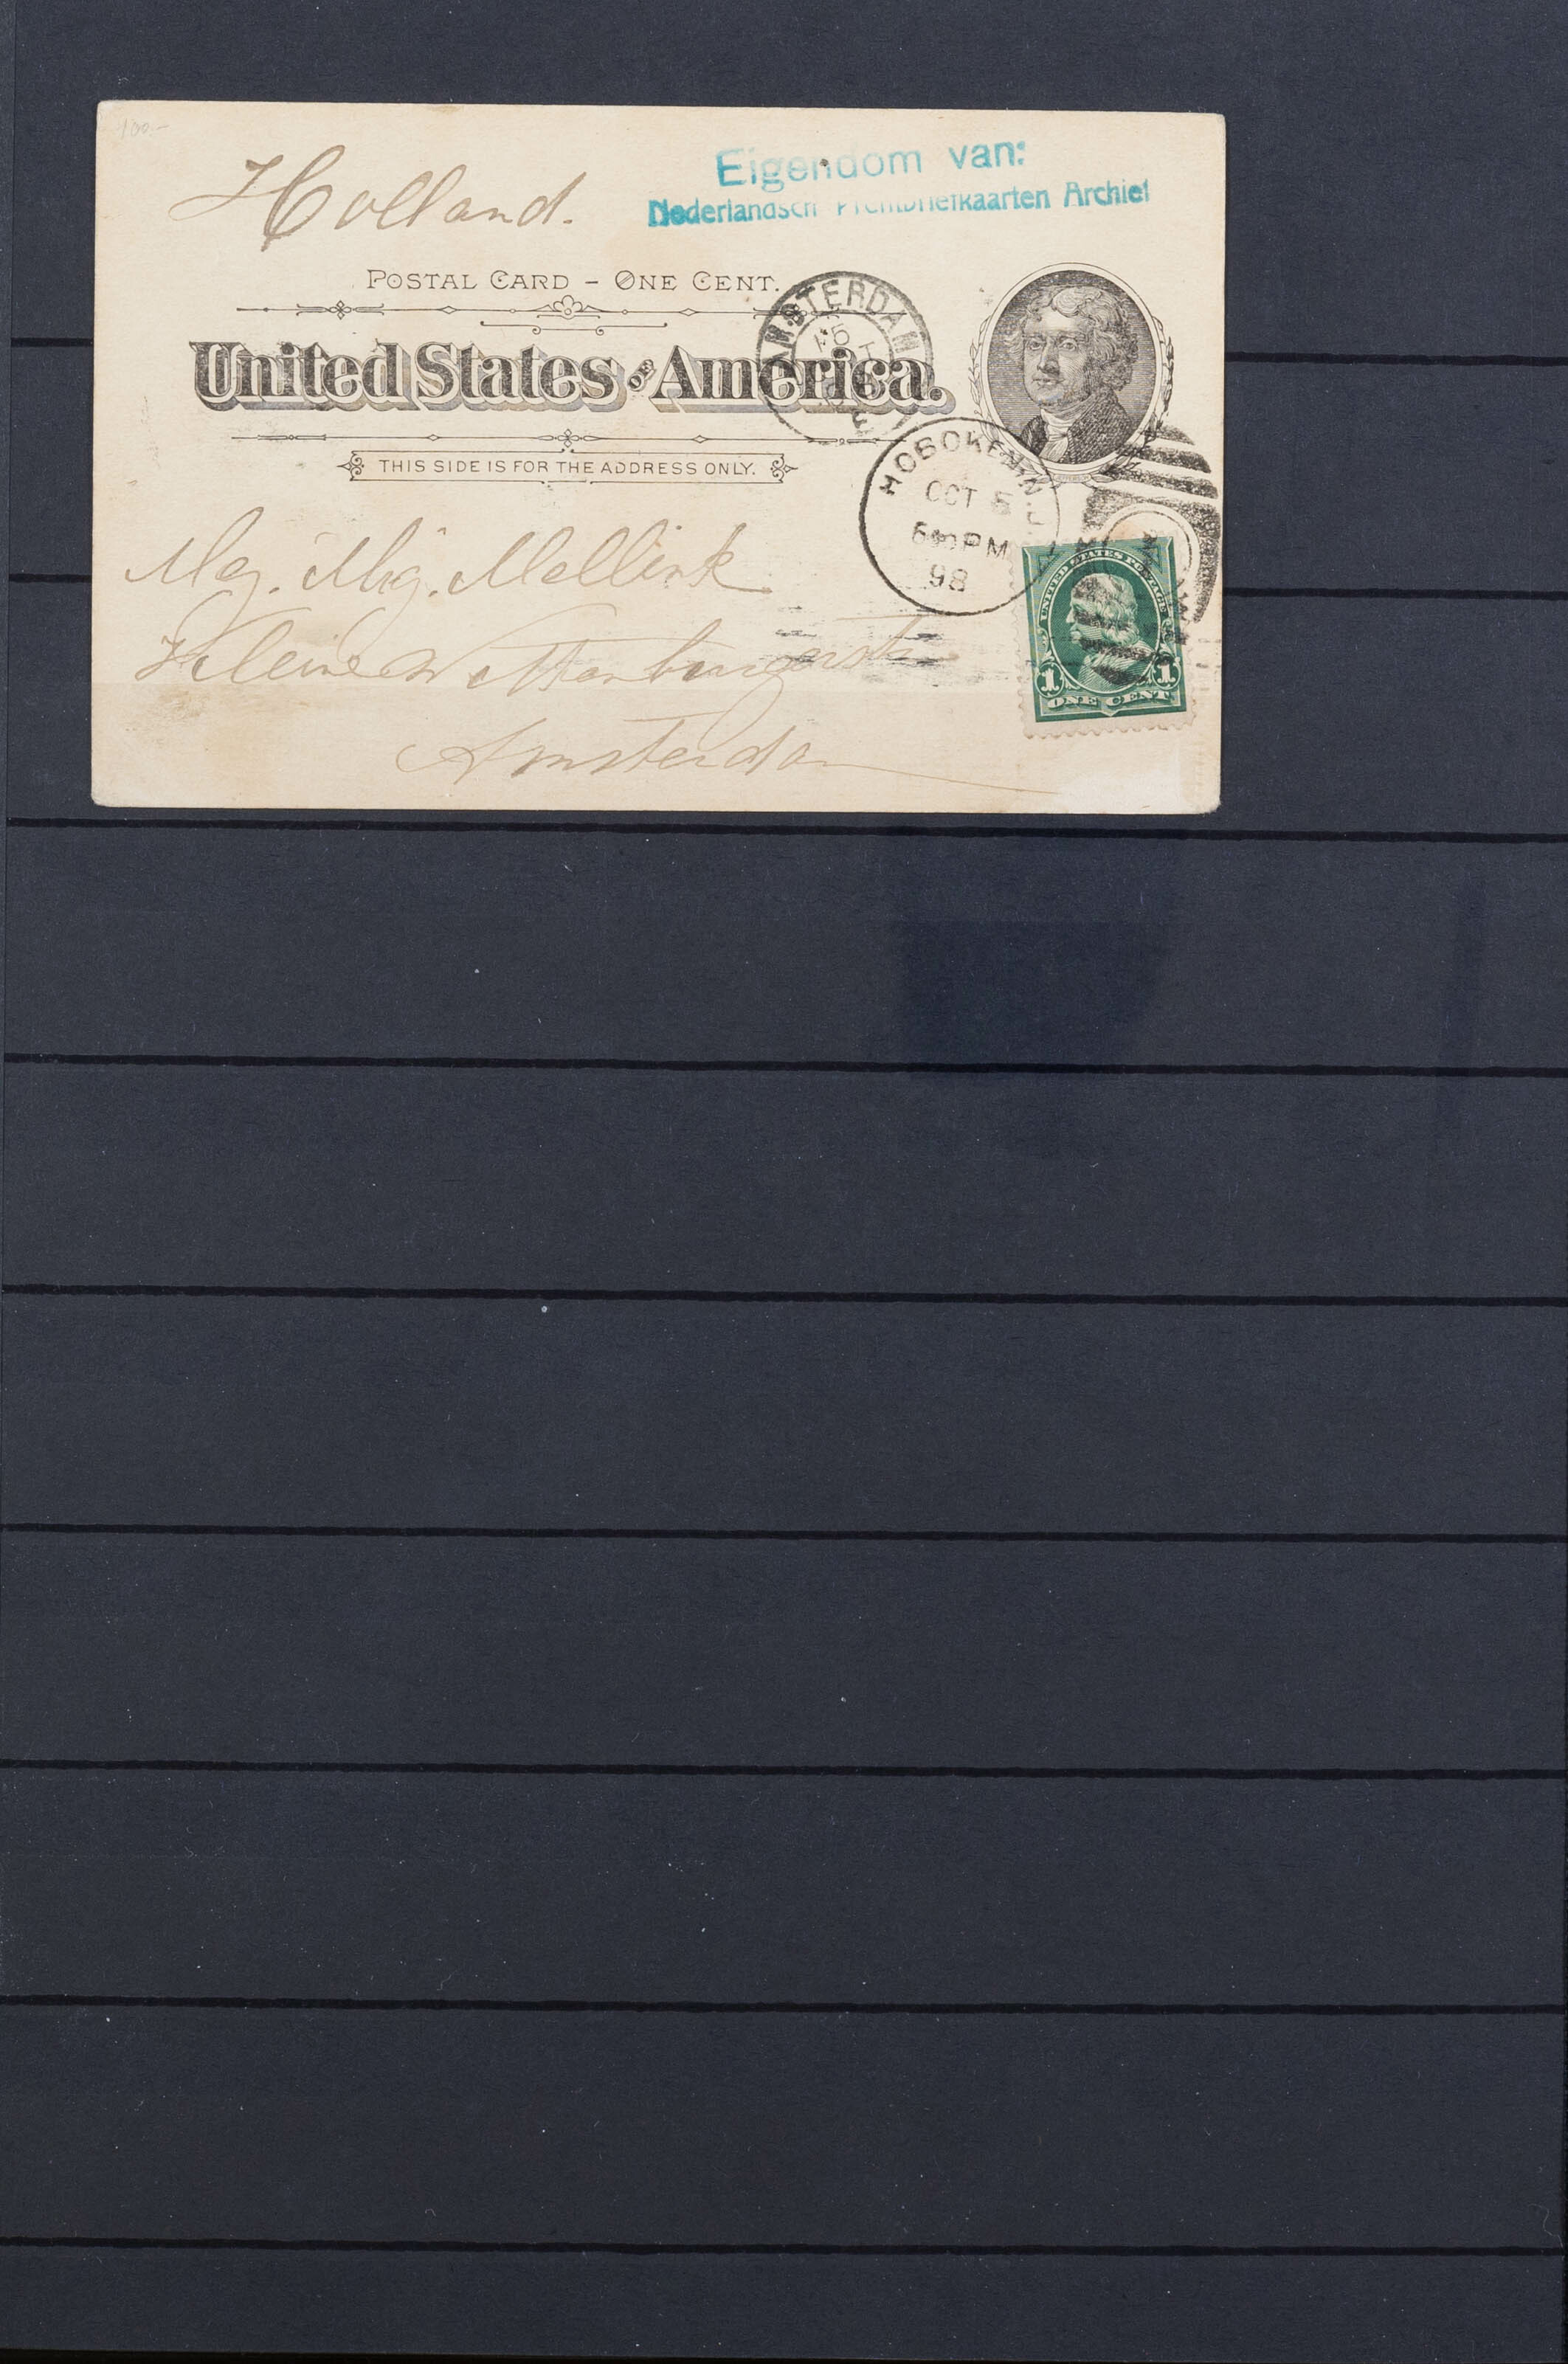 100.-
Holland.
Eigendom van:
Nederlandsch Prentbriefkaarten Archief
POSTAL CARD – ONE CENT.
United States of America.
THIS SIDE IS FOR THE ADDRESS ONLY.
AMSTERDAM
HOBOKEN, N.J.
OCT 5
PM
98
Mej. Mellink
Kleine Wittenburgerstr
Amsterdam
UNITED STATES POSTAGE
1 1
ONE CENT